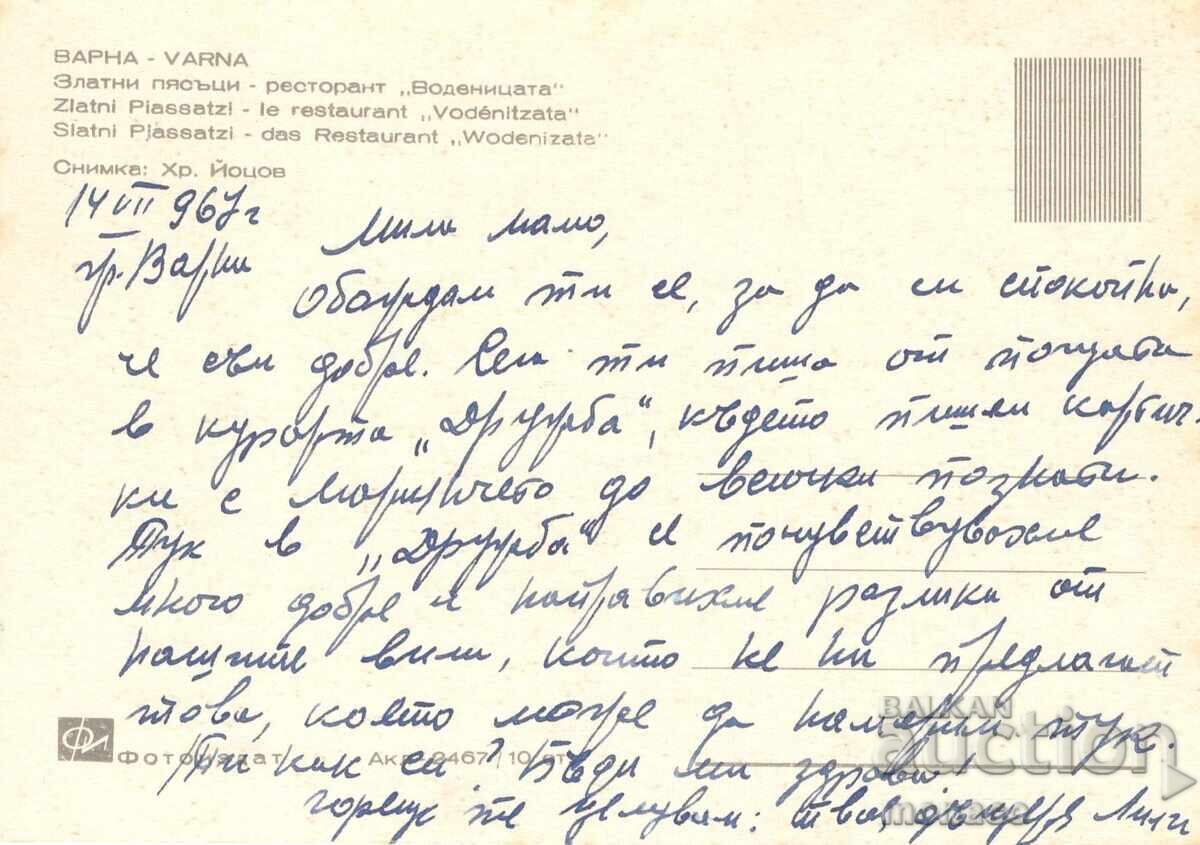 ВАРНА - VARNA
Златни пясъци - ресторант „Воденицата"
Zlatni Piassatzi - le restaurant „Vodénitzata"
Slatni Pjassatzi - das Restaurant „Wodenizata"
Снимка: Хр. Йоцов
14 VII 967 г
гр. Варна
Мила мамо,
Обаждам ти се, за да си спокойна,
че съм добре. Сега ти пиша от пощата
в курорта „Дружба", където пишем картич-
ки с до всички познати.
Тук в „Дружба" се почувствувахме
много добре и направихме разлика от
нашите вили, които не ни предлагат
това, което може да намерим тук.
Ти как си? Бъди ми здрава!
горещо те целувам: твоя дъщеря Лили
Фотоиздат Ак. 2467 10 ст
BALKAN
auction